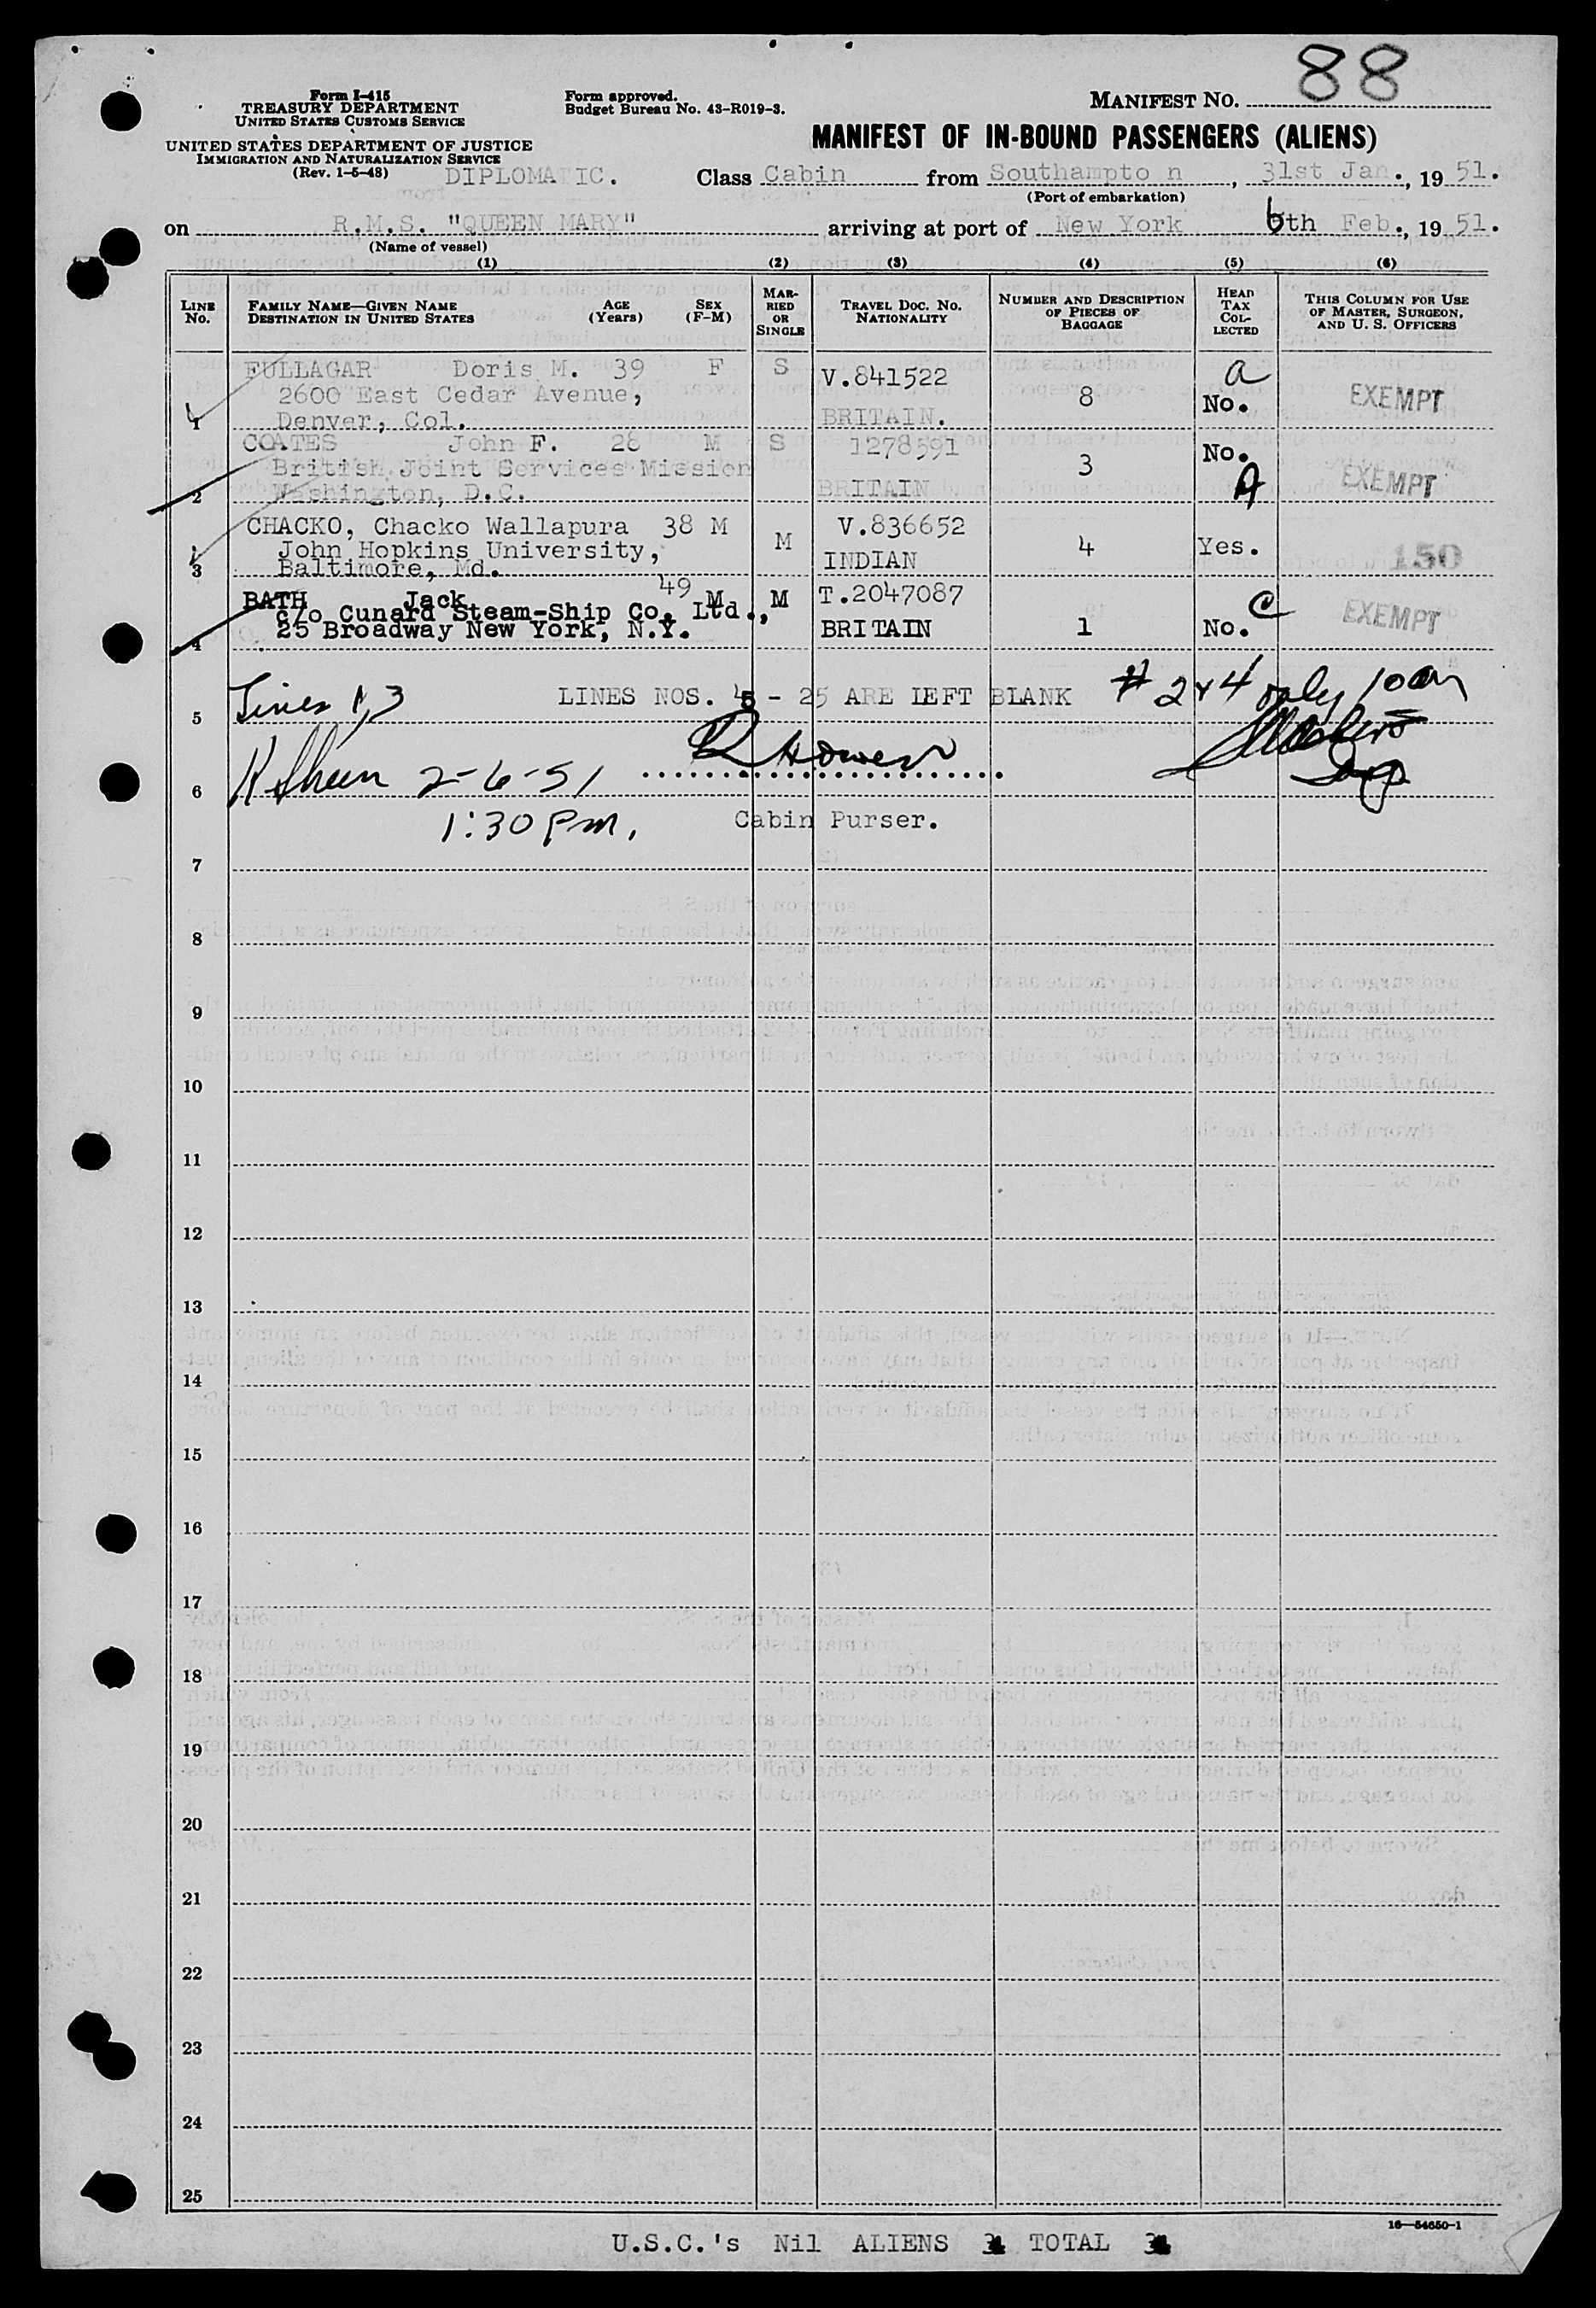 88
Form I-415
TREASURY DEPARTMENT
UNITED STATES CUSTOMS SERVICE
UNITED STATES DEPARTMENT OF JUSTICE
IMMIGRATION AND NATURALIZATION SERVICE
(Rev. 1-5-48)
DIPLOMATIC.
Form approved.
Budget Bureau No. 43-R019-3.
MANIFEST NO.
MANIFEST OF IN-BOUND PASSENGERS (ALIENS)
Class Cabin from Southampto n, 31st Jan., 19 51.
(Port of embarkation)
on R.M.S. "QUEEN MARY" arriving at port of New York 6th Feb., 19 51.
(Name of vessel)
(1) (2) (3) (4) (5) (6)
LINE No. FAMILY NAME—GIVEN NAME DESTINATION IN UNITED STATES AGE (Years) SEX (F-M) MARRIED OR SINGLE TRAVEL DOC. NO. NATIONALITY NUMBER AND DESCRIPTION OF PIECES OF BAGGAGE HEAD TAX COLLECTED THIS COLUMN FOR USE OF MASTER, SURGEON, AND U. S. OFFICERS
FULLAGAR Doris M. 39 F S V.841522 a
2600 East Cedar Avenue, 8 No. EXEMPT
1 Denver, Col. BRITAIN.
COATES John F. 28 M S 1278591 No.
British Joint Services Mission 3 EXEMPT
2 Washington, D.C. BRITAIN A
CHACKO, Chacko Wallapura 38 M M V.836652
John Hopkins University, 4 Yes.
3 Baltimore, Md. INDIAN 150
BATH Jack 49 M M T.2047087 C
c/o Cunard Steam-Ship Co. Ltd., EXEMPT
4 25 Broadway New York, N.Y. BRITAIN 1 No.
5 Lines 1,3 LINES NOS. 5 - 25 ARE LEFT BLANK # 2 & 4 only 10 am
6 2-6-51
1:30 Pm. Cabin Purser.
7
8
9
10
11
12
13
14
15
16
17
18
19
20
21
22
23
24
25
16—54650-1
U.S.C.'s Nil ALIENS TOTAL